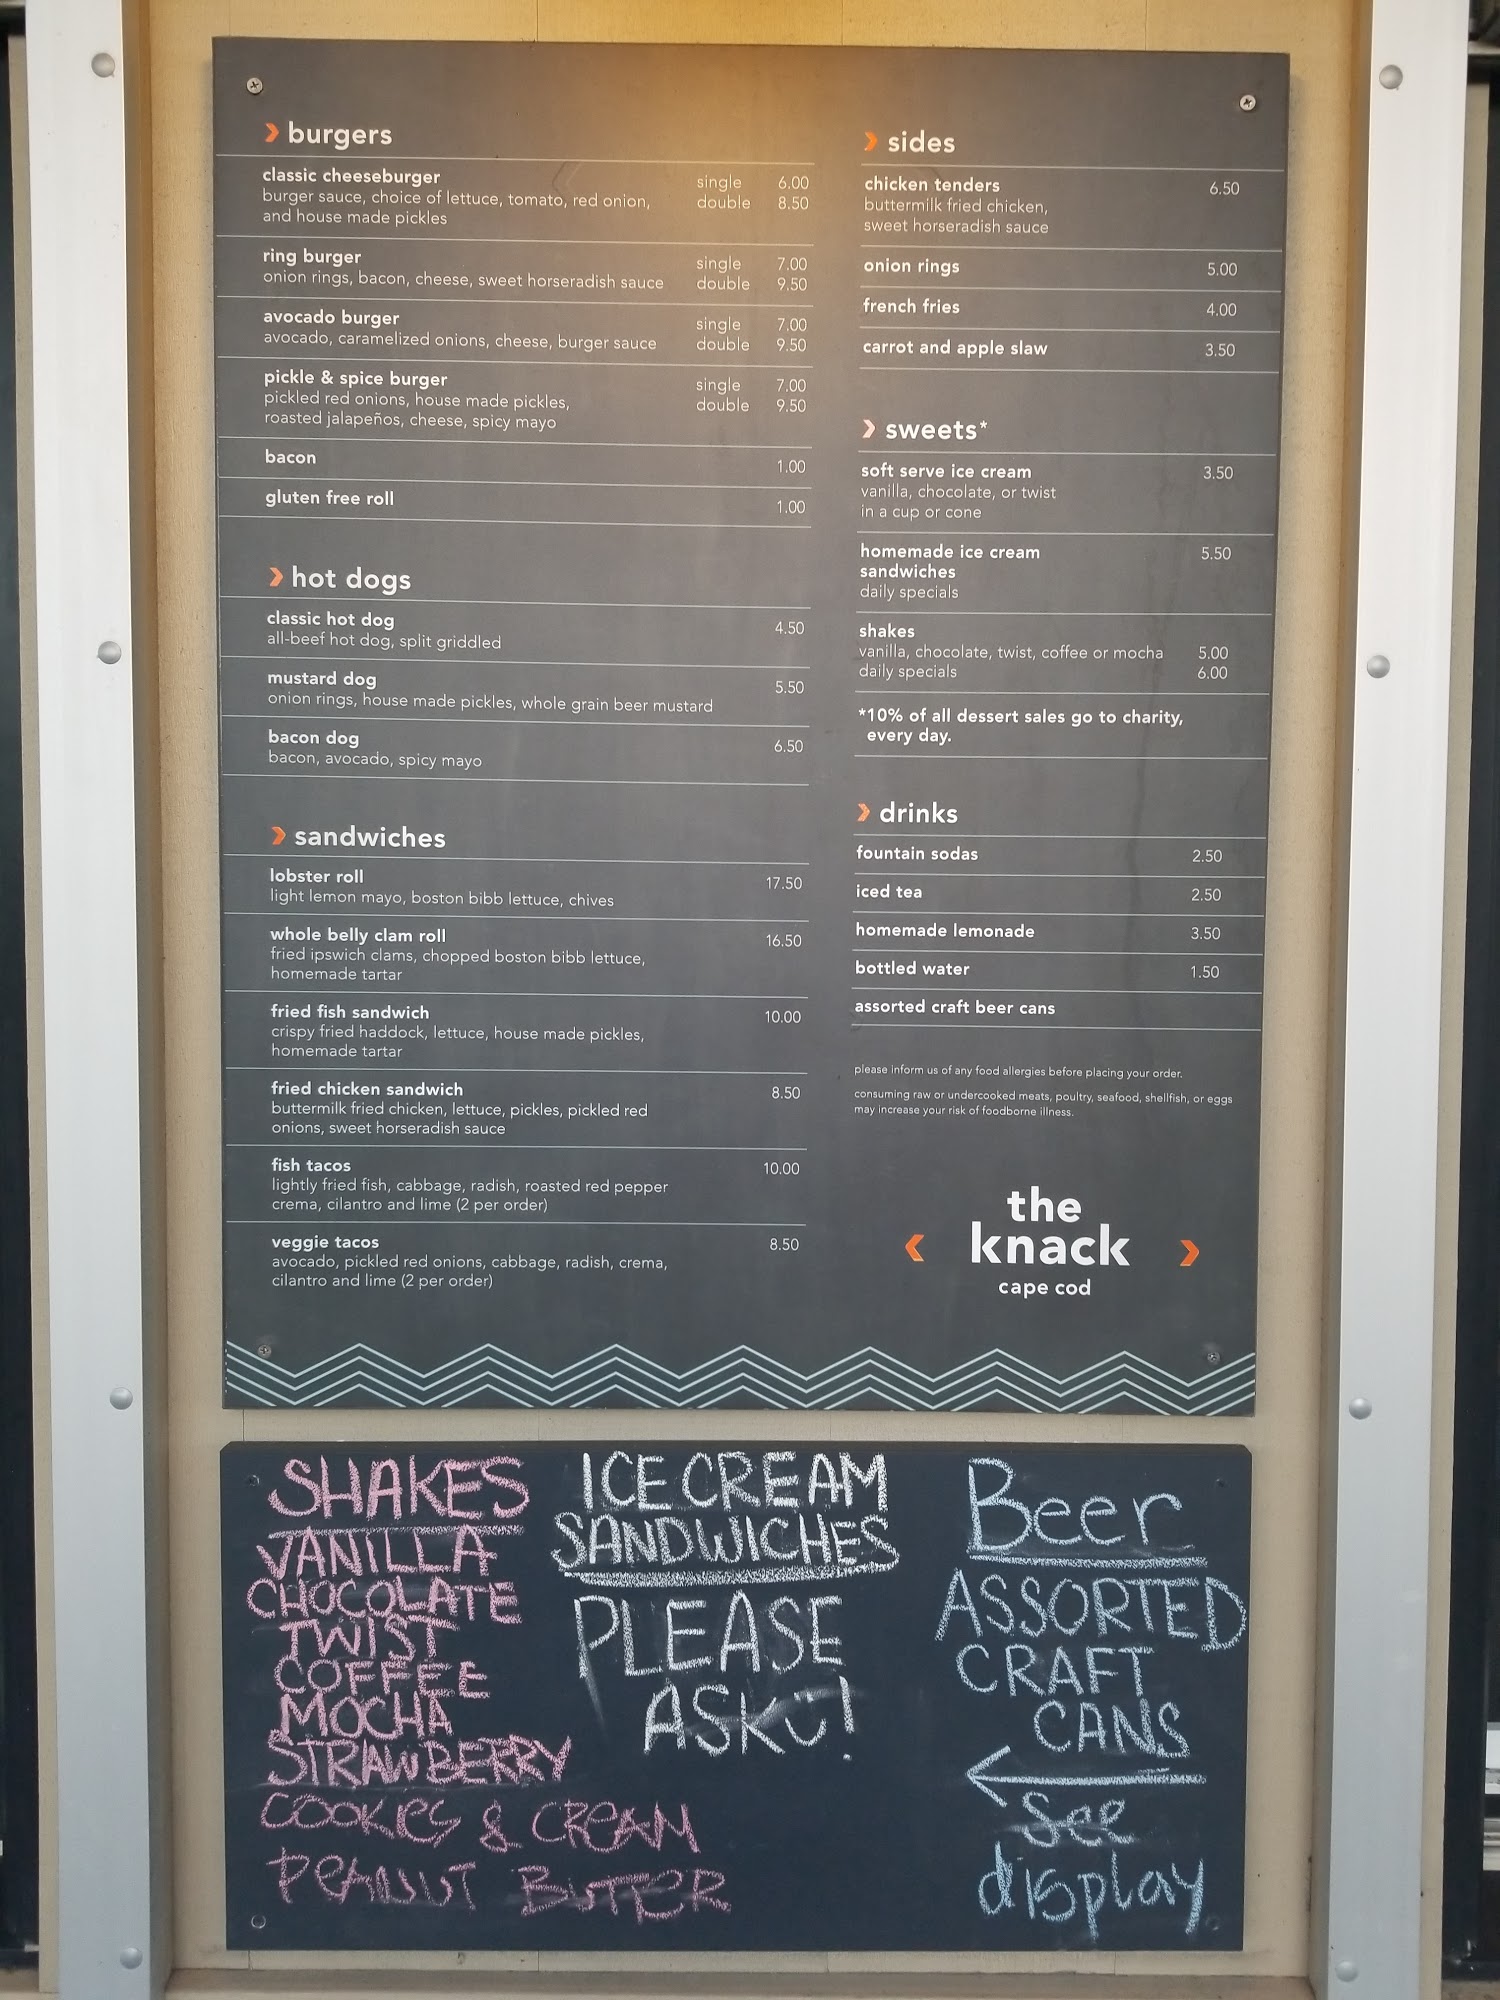 burgers
classic cheeseburger
burger sauce, choice of lettuce, tomato, red onion,
and house made pickles
single 6.00
double 8.50
ring burger
onion rings, bacon, cheese, sweet horseradish sauce
single 7.00
double 9.50
avocado burger
avocado, caramelized onions, cheese, burger sauce
single 7.00
double 9.50
pickle & spice burger
pickled red onions, house made pickles,
roasted jalapeños, cheese, spicy mayo
single 7.00
double 9.50
bacon 1.00
gluten free roll 1.00
hot dogs
classic hot dog 4.50
all-beef hot dog, split griddled
mustard dog 5.50
onion rings, house made pickles, whole grain beer mustard
bacon dog 6.50
bacon, avocado, spicy mayo
sandwiches
lobster roll 17.50
light lemon mayo, boston bibb lettuce, chives
whole belly clam roll 16.50
fried ipswich clams, chopped boston bibb lettuce,
homemade tartar
fried fish sandwich 10.00
crispy fried haddock, lettuce, house made pickles,
homemade tartar
fried chicken sandwich 8.50
buttermilk fried chicken, lettuce, pickles, pickled red
onions, sweet horseradish sauce
fish tacos 10.00
lightly fried fish, cabbage, radish, roasted red pepper
crema, cilantro and lime (2 per order)
veggie tacos 8.50
avocado, pickled red onions, cabbage, radish, crema,
cilantro and lime (2 per order)
sides
chicken tenders 6.50
buttermilk fried chicken,
sweet horseradish sauce
onion rings 5.00
french fries 4.00
carrot and apple slaw 3.50
sweets*
soft serve ice cream 3.50
vanilla, chocolate, or twist
in a cup or cone
homemade ice cream 5.50
sandwiches
daily specials
shakes
vanilla, chocolate, twist, coffee or mocha 5.00
daily specials 6.00
*10% of all dessert sales go to charity,
every day.
drinks
fountain sodas 2.50
iced tea 2.50
homemade lemonade 3.50
bottled water 1.50
assorted craft beer cans
please inform us of any food allergies before placing your order.
consuming raw or undercooked meats, poultry, seafood, shellfish, or eggs
may increase your risk of foodborne illness.
the
knack
cape cod
SHAKES
VANILLA
CHOCOLATE
TWIST
COFFEE
MOCHA
STRAWBERRY
COOKIES & CREAM
PEANUT BUTTER
ICE CREAM
SANDWICHES
PLEASE
ASK!
Beer
ASSORTED
CRAFT
CANS
See
display